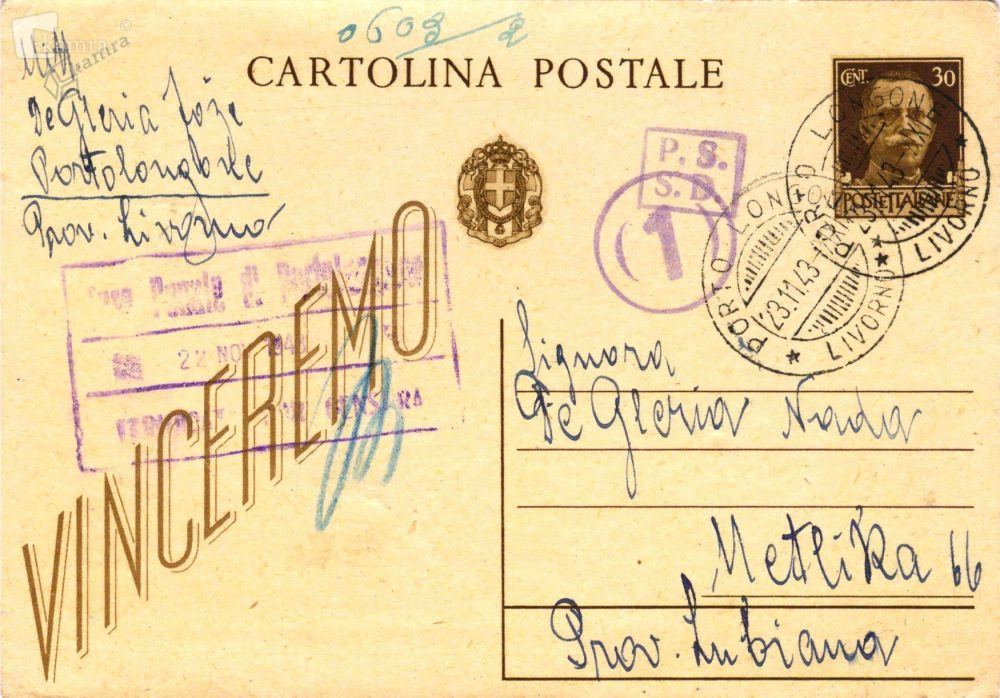 kamra ©
kamra
0603 2
CARTOLINA POSTALE
CENT. 30
POSTE ITALIANE
De Gleria Jože
Portolongone
Prov. Livorno
P. S.
S. D.
1
PORTO LONGONE
23.11.43
* LIVORNO *
PORTO LONGONE
23.11.43
* LIVORNO *
Casa Penale di Portolongone
22 NOV 1943
CENSURA
VINCEREMO
Signora
De Gleria Nada
Metlika 66
Prov. Lubiana